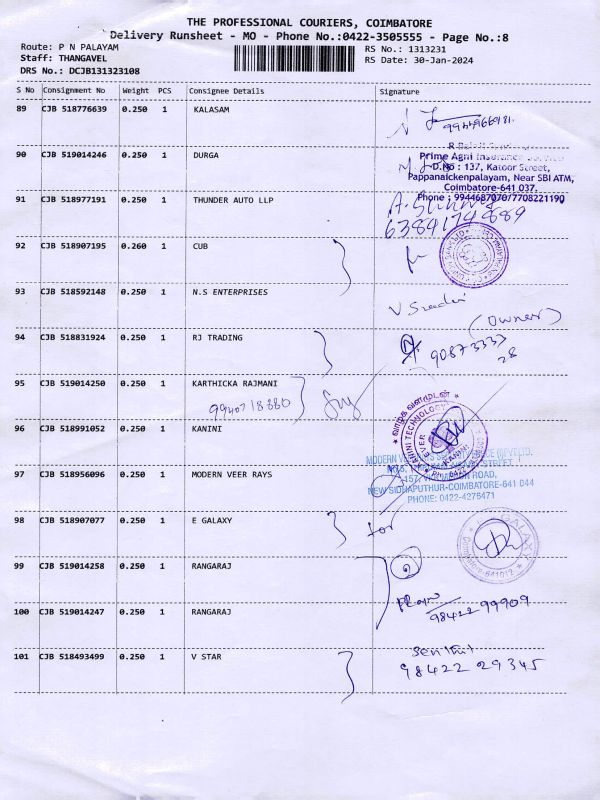 THE PROFESSIONAL COURIERS, COIMBATORE
Delivery Runsheet - MO - Phone No.:0422-3505555 - Page No.:8
Route: P N PALAYAM
Staff: THANGAVEL
DRS No.: DCJB131323108
RS No.: 1313231
RS Date: 30-Jan-2024
S No Consignment No Weight PCS Consignee Details Signature
89 CJB 518776639 0.250 1 KALASAM
90 CJB 519014246 0.250 1 DURGA
Prime Agni Insurance
D.No : 137, Katoor Street,
Pappanaickenpalayam, Near SBI ATM,
Coimbatore-641 037.
Phone : 9944687070/7708221190
91 CJB 518977191 0.250 1 THUNDER AUTO LLP
6384174889
92 CJB 518907195 0.260 1 CUB
93 CJB 518592148 0.250 1 N.S ENTERPRISES
(Owner)
94 CJB 518831924 0.250 1 RJ TRADING
90873337
28
95 CJB 519014250 0.250 1 KARTHICKA RAJMANI
9940718880
96 CJB 518991052 0.250 1 KANINI
வாழ்க வளமுடன்
97 CJB 518956096 0.250 1 MODERN VEER RAYS
NEW SIDHAPUTHUR-COIMBATORE-641 044
PHONE: 0422-4276471
98 CJB 518907077 0.250 1 E GALAXY
for
GALAXY
Coimbatore-641012
99 CJB 519014258 0.250 1 RANGARAJ
100 CJB 519014247 0.250 1 RANGARAJ
98422 99909
101 CJB 518493499 0.250 1 V STAR
Senthil
98422 29345